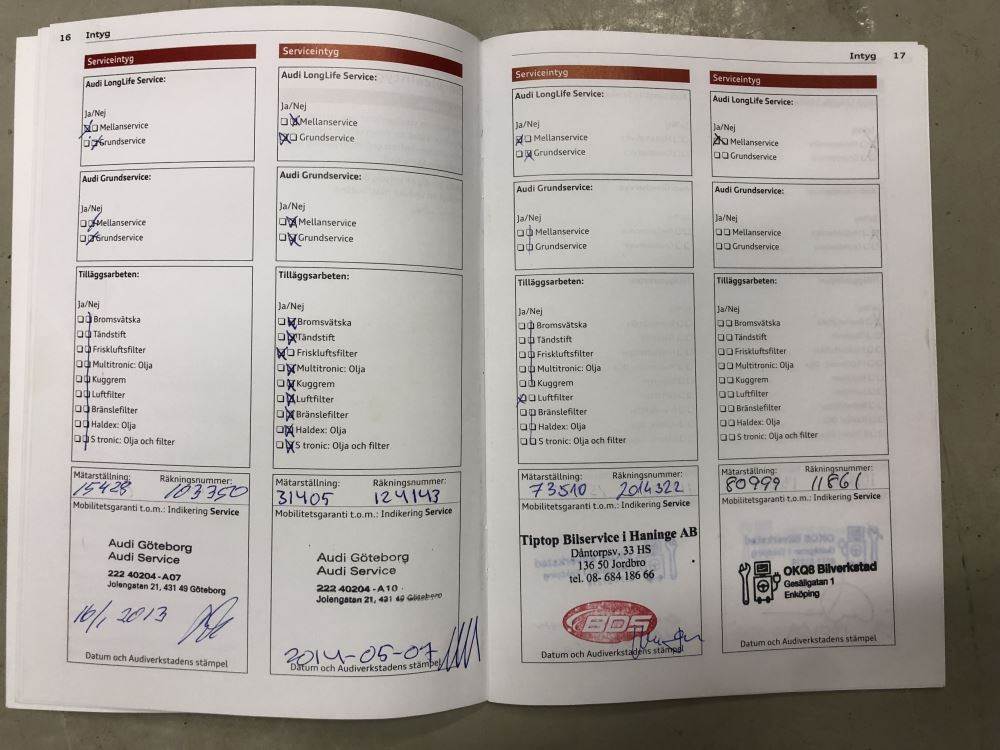 16 Intyg
Serviceintyg
Audi LongLife Service:
Ja/Nej
Mellanservice
Grundservice
Audi Grundservice:
Ja/Nej
Mellanservice
Grundservice
Tilläggsarbeten:
Ja/Nej
Bromsvätska
Tändstift
Friskluftsfilter
Multitronic: Olja
Kuggrem
Luftfilter
Bränslefilter
Haldex: Olja
S tronic: Olja och filter
Mätarställning: Räkningsnummer:
15428 103350
Mobilitetsgaranti t.o.m.: Indikering Service
Audi Göteborg
Audi Service
222 40204-A07
Jolengatan 21, 431 49 Göteborg
16/1 2013
Datum och Audiverkstadens stämpel
Serviceintyg
Audi LongLife Service:
Ja/Nej
Mellanservice
Grundservice
Audi Grundservice:
Ja/Nej
Mellanservice
Grundservice
Tilläggsarbeten:
Ja/Nej
Bromsvätska
Tändstift
Friskluftsfilter
Multitronic: Olja
Kuggrem
Luftfilter
Bränslefilter
Haldex: Olja
S tronic: Olja och filter
Mätarställning: Räkningsnummer:
31405 124143
Mobilitetsgaranti t.o.m.: Indikering Service
Audi Göteborg
Audi Service
222 40204-A10
Jolengatan 21, 431 49 Göteborg
2014-05-07
Datum och Audiverkstadens stämpel
Intyg 17
Serviceintyg
Audi LongLife Service:
Ja/Nej
Mellanservice
Grundservice
Audi Grundservice:
Ja/Nej
Mellanservice
Grundservice
Tilläggsarbeten:
Ja/Nej
Bromsvätska
Tändstift
Friskluftsfilter
Multitronic: Olja
Kuggrem
Luftfilter
Bränslefilter
Haldex: Olja
S tronic: Olja och filter
Mätarställning: Räkningsnummer:
73510 2014322
Mobilitetsgaranti t.o.m.: Indikering Service
Tiptop Bilservice i Haninge AB
Dåntorpsv, 33 HS
136 50 Jordbro
tel. 08- 684 186 66
BDS
Datum och Audiverkstadens stämpel
Serviceintyg
Audi LongLife Service:
Ja/Nej
Mellanservice
Grundservice
Audi Grundservice:
Ja/Nej
Mellanservice
Grundservice
Tilläggsarbeten:
Ja/Nej
Bromsvätska
Tändstift
Friskluftsfilter
Multitronic: Olja
Kuggrem
Luftfilter
Bränslefilter
Haldex: Olja
S tronic: Olja och filter
Mätarställning: Räkningsnummer:
80999 11861
Mobilitetsgaranti t.o.m.: Indikering Service
OKQ8 Bilverkstad
Gesällgatan 1
Enköping
Datum och Audiverkstadens stämpel